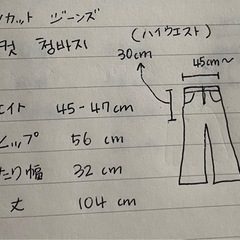 カット ジーンズ
컷 청바지
(ハイウエスト)
30cm
45cm~
45-47cm
56 cm
32 cm
丈 104 cm